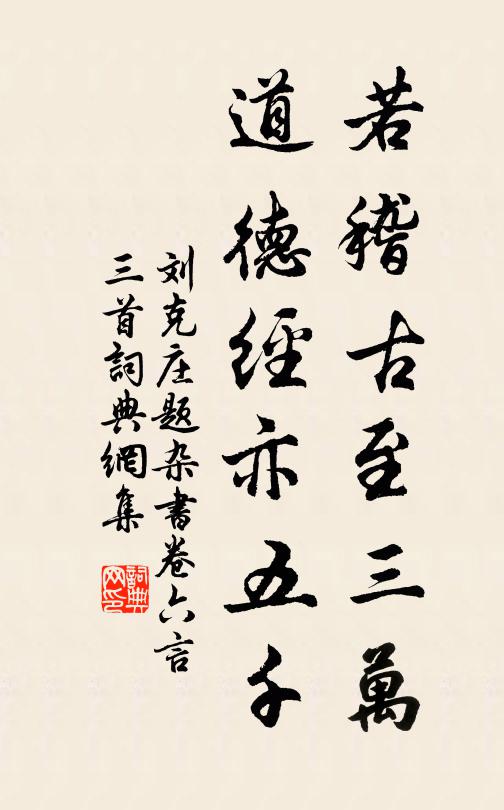 若稽古至三萬
道德經亦五千
刘克庄题杂書卷六言
三首詞典網集
詞典網印